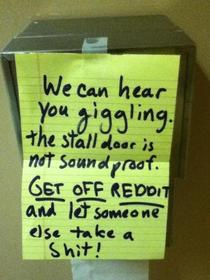 We can hear
you giggling.
the stall door is
not soundproof.
GET OFF REDDIT
and let someone
else take a
shit!